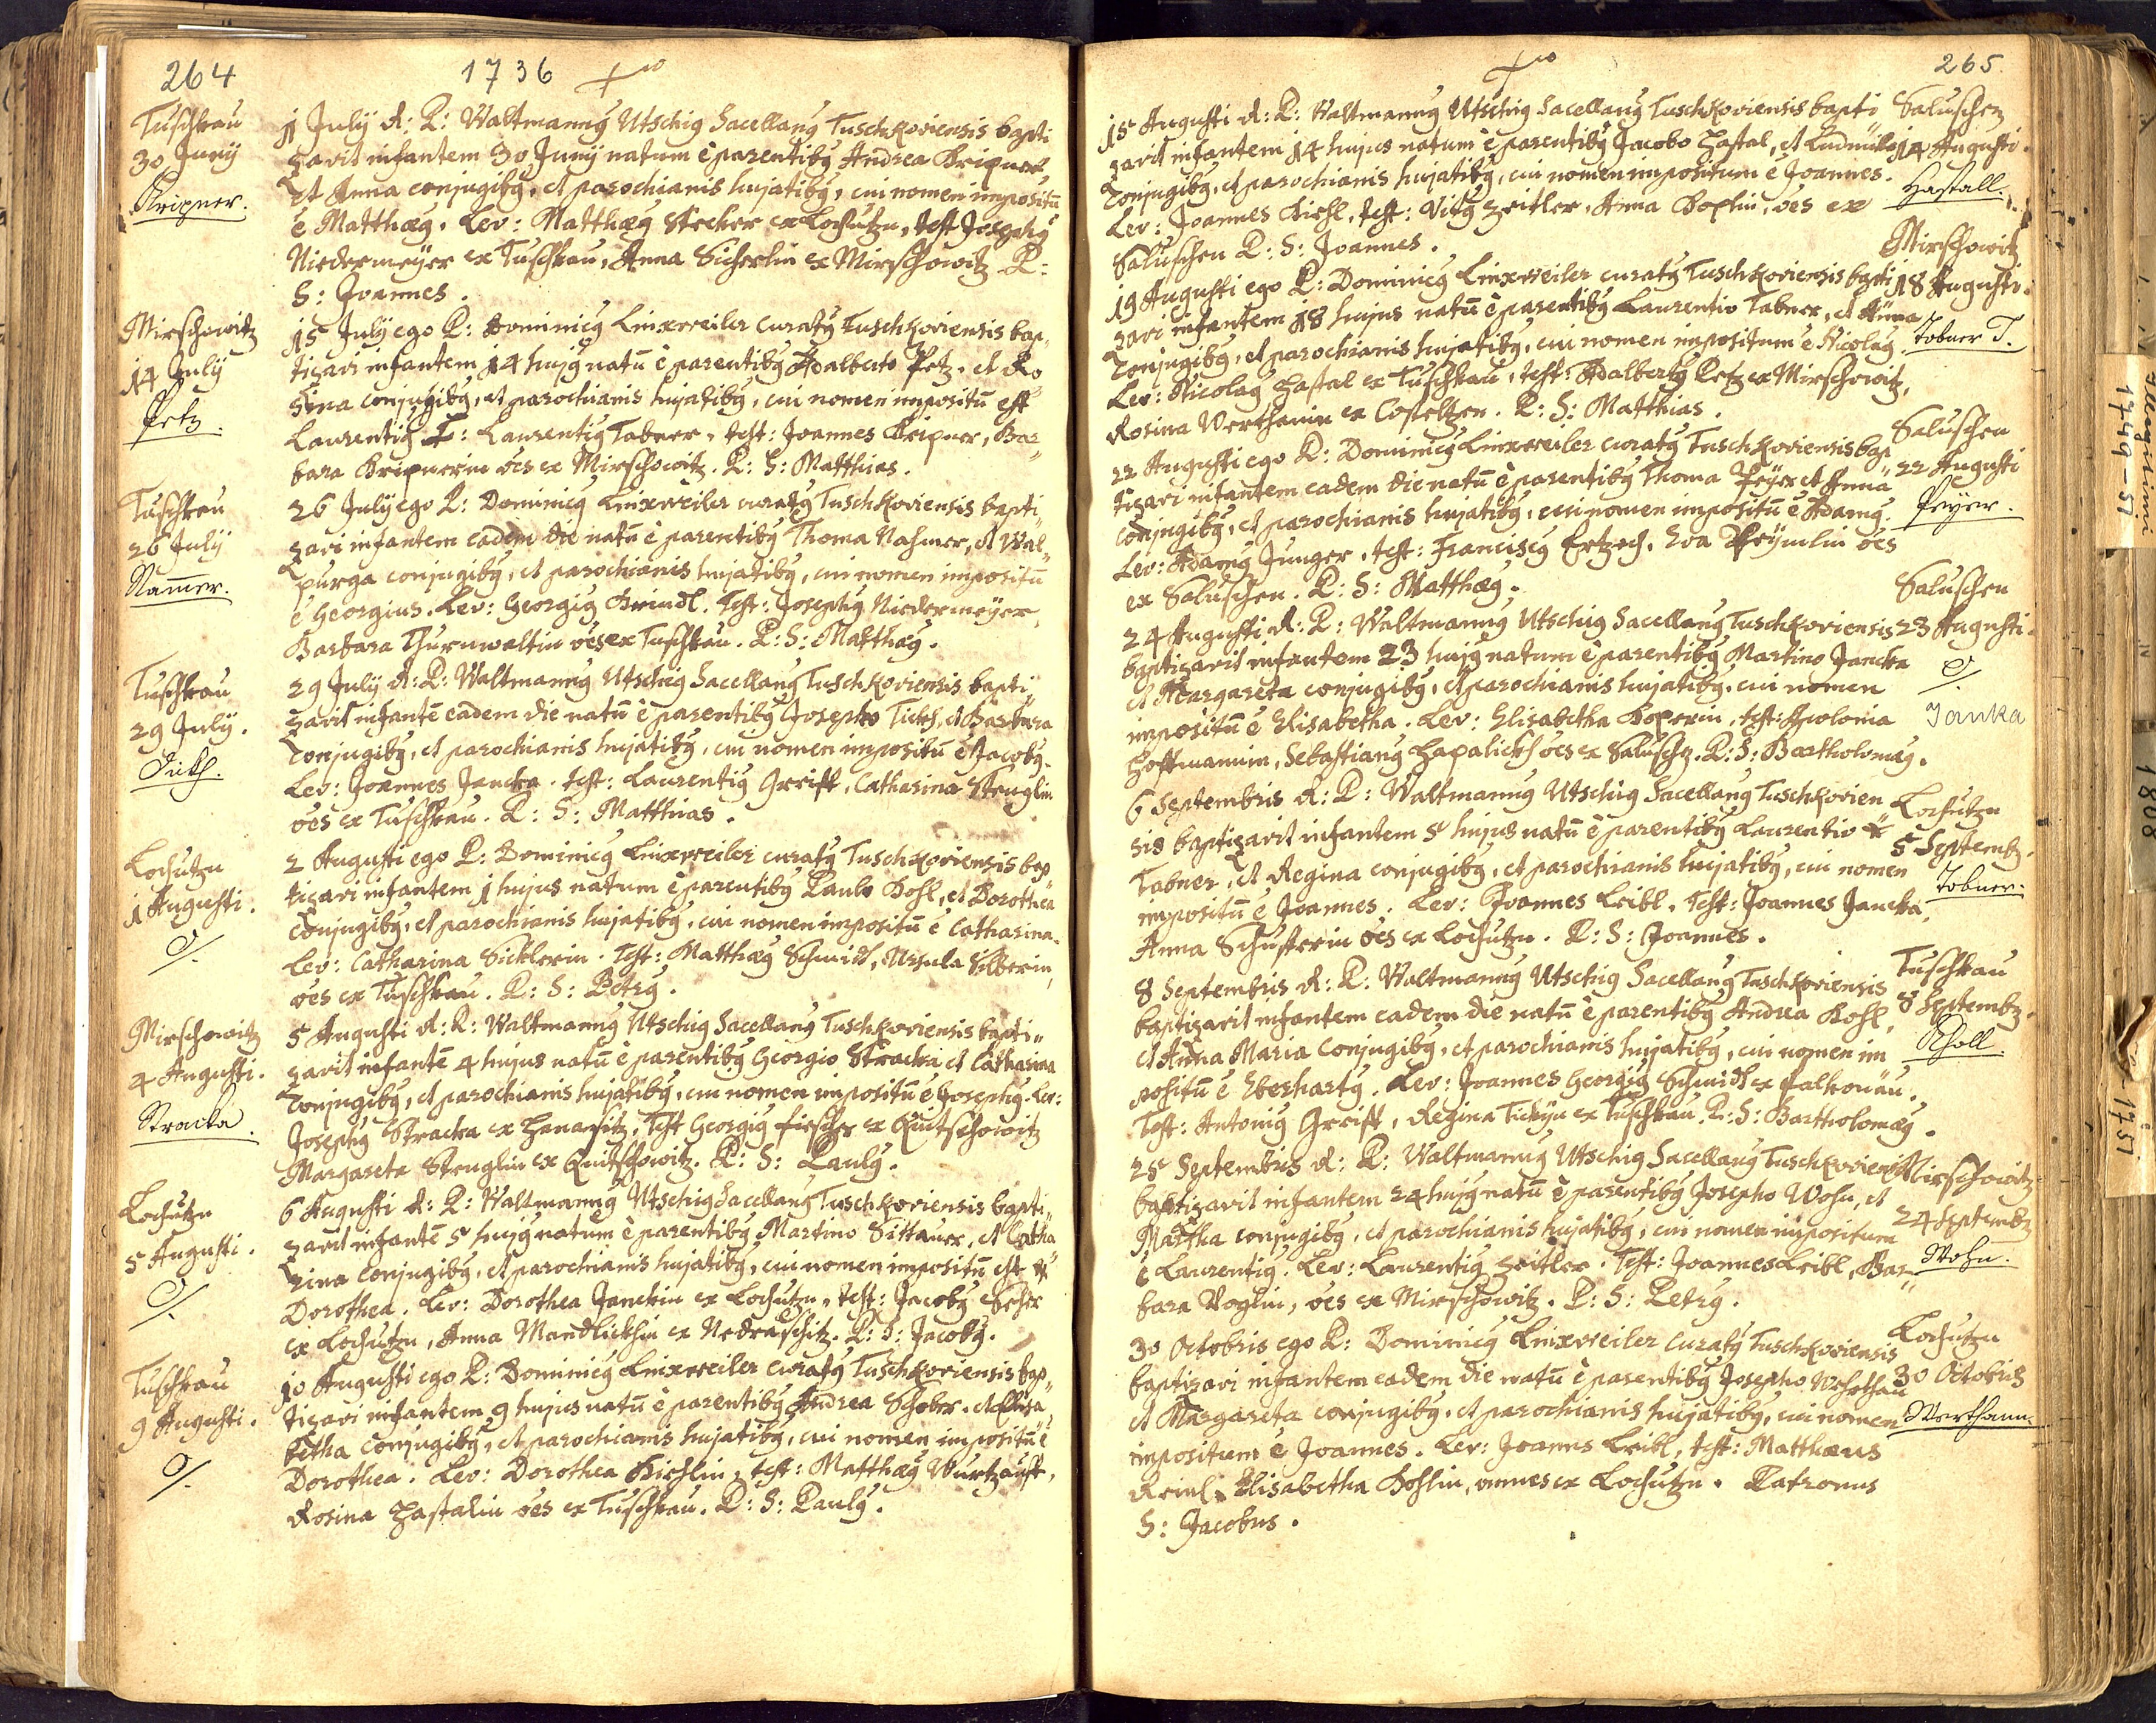 264 1736
Tuschkau
30 Junÿ
Kripner.
1 Julÿ A: R: P: Waltmannus Utschig Sacellanus Tuschkoviensis bapti
zavit infantem 30 Junÿ natum è parentibus Andrea Kripner,
et Anna conjugibus, et parochianis hujatibus, cui nomen impositū
ē Matthæus. Lev: Matthæus Stecher ex Lochutzn, test Josephus
Niedermeÿer ex Tuschkau, Anna Sicherlin ex Mirschowitz P:
S: Joannes.
Mirschowitz
14 Julÿ
Petz.
15 Julÿ ego P: Dominicus Linxweiler curatus Tuschkoviensis bap„
tizavi infantem 14 hujus natū è parentibus Adalberto Petz, et Ro
sina conjugibus, et parochianis hujatibus, cui nomen impositū est
Laurentius L: Laurentius Tabner, test: Joannes Kripner, Bar„
bara Kripnerin oēs ex Mirschowitz. P: S: Matthias.
Tuschkau
26 Julÿ
Nam̄er.
26 Julÿ ego P: Dominicus Linxweiler curatus Tuschkoviensis bapti„
zavi infantem eadem die natū è parentibus Thoma Nahmer, et Wal„
purga conjugibus, et parochianis hujatibus, cui nomen impositū
ē Georgius. Lev: Georgius Breindl. Test: Josephus Niedermeÿer,
Barbara Thurnwaltin oēs ex Tuschkau. P: S: Matthæus.
Tuschkau
29 Julÿ.
Tickh.
29 Julÿ A: P: Waltmannus Utschig Sacellanus Tuschkoviensis bapti„
zavit infantē eadem die natū è parentibus Josepho Tickh, et Barbara
conjugibus, et parochianis hujatibus, cui nomen impositū ē Jacobus.
Lev: Joannes Jancka. test: Laurentius Greifft, Catharina Stenglin
oēs ex Tuschkau. P: S: Matthias.
Lochutzn
1 Augusti.
2 Augusti ego P: Dominicus Linxweiler curatus Tuschkoviensis bap„
tizavi infantem 1 hujus natum è parentibus Paulo Kohl, et Dorothea
conjugibus, et parochianis hujatibus, cui nomen impositū ē Catharina.
Lev: Catharina Sicklerin. Test: Matthæus Schmidt, Ursula Silberin,
oēs ex Tuschkau. P: S: Petrus.
Mirschowitz
4 Augusti.
Stracka.
5 Augusti A: P: Waltmannus Utschig Sacellanus Tuschkoviensis bapti„
zavit infantē 4 hujus natū è parentibus Georgio Stracka et Catharina
conjugibus, et parochianis hujatibus, cui nomen impositū ē Josephus. Lev:
Josephus Stracka ex Hanasitz, Test Georgius Fiescher ex Quitschowitz
Margareta Stenglin ex Quitschowitz. P: S: Paulus.
Lochutzn
5 Augusti.
6 Augusti A: P: Waltmannus Utschig Sacellanus Tuschkoviensis bapti„
zavit infantē 5 hujus natum è parentibus Martino Sittauer, et Catha
rina conjugibus, et parochianis hujatibus, cui nomen impositū est
Dorothea. Lev: Dorothea Janckin ex Lochutzn, test: Jacobus Beher
ex Lochutzn, Anna Mandlickhin ex Nedraschitz. P: S: Jacobus.
Tuschkau
9 Augusti.
10 Augusti ego P: Dominicus Linxweiler curatus Tuschkoviensis bap„
tizavi infantem 9 hujus natū è parentibus Andrea Schober, et Elisa„
betha conjugibus, et parochianis hujatibus, cui nomen impositū ē
Dorothea. Lev: Dorothea Kichlin, test: Matthæus Wurtzauft,
Rosina Hastalin oēs ex Tuschkau. P: S: Paulus.
265
Saluschen
14 Augusti.
Hastall.
15 Augusti A: P: Waltmannus Utschig Sacellanus Tuschkoviensis bapti„
zavit infantem 14 hujus natum è parentibus Jacobo Hastal, et Ludmilla
conjugibus, et parochianis hujatibus, cui nomen impositum ē Joannes.
Lev: Joannes Kiehl, test: Vitus Zeitler, Anna Koplin, oēs ex
Saluschen P: S: Joannes.
Mirschowitz
18 Augusti.
Tobner T.
19 Augusti ego P: Dominicus Linxweiler curatus Tuschkoviensis bapti
zavi infantem 18 hujus natū è parentibus Laurentio Tabner, et Anna
conjugibus, et parochianis hujatibus, cui nomen impositum ē Nicolaus.
Lev: Nicolaus Hastal ex Tuschkau, test: Adalbertus Petz ex Mirschowitz,
Rosina Werthanin ex Costeltzen. P: S: Matthias.
Saluschen
22 Augusti
Peyer.
22 Augusti ego P: Dominicus Linxweiler curatus Tuschkoviensis bap„
tizavi infantem eadem die natū è parentibus Thoma Peÿer et Anna
conjugibus, et parochianis hujatibus, cui nomen impositū ē Adamus.
Lev: Adamus Junger, test: Franciscus Ertzech, Eva Breÿmlin oēs
ex Saluschen. P: S: Matthæus.
Saluschen
23 Augusti.
Janka
24 Augusti A: P: Waltmannus Utschig Sacellanus Tuschkoviensis
baptizavit infantem 23 hujus natum è parentibus Martino Jancka
et Margareta conjugibus, et parochianis hujatibus, cui nomen
impositū ē Elisabetha. Lev: Elisabetha Koperin, test: Apolonia
Hoffmannin, Sebastianus Hapalickh oēs ex Saluschn. P: S: Bartholomæus.
Lochutzn
5 Septembr.
Tobner.
6 Septembris A: P: Waltmannus Utschig Sacellanus Tuschkovien
sis baptizavit infantem 5 hujus natū è parentibus Laurentio
Tabner, et Regina conjugibus, et parochianis hujatibus, cui nomen
impositū ē Joannes. Lev: Joannes Leibl, Test: Joannes Jancka,
Anna Schusterin oēs ex Lochutzn. P: S: Joannes.
Tuschkau
8 Septembr.
Kholl.
8 Septembris A: P: Waltmannus Utschig Sacellanus Tuschkoviensis
baptizavit infantem eadem die natū è parentibus Andrea Kohl,
et Anna Maria conjugibus, et parochianis hujatibus, cui nomen im
positū ē Eberhartus. Lev: Joannes Georgius Schmidt ex Falkonau.
Test: Antonius Greifft, Regina Tickÿn ex Tuschkau. P: S: Bartholomæus.
Mirschowitz
24 Septembr
Wohn.
25 Septembris A: P: Waltmannus Utschig Sacellanus Tuschkoviensis
baptizavit infantem 24 hujus natū è parentibus Josepho Wohn, et
Martha conjugibus, et parochianis hujatibus, cui nomen impositum
ē Laurentius. Lev: Laurentius Zeitler. Test: Joannes Leibl, Bar„
bara Voglin, oēs ex Mirschowitz. P: S: Petrus.
Lochutzn
30 Octobris
Werthann.
30 Octobris ego P: Dominicus Linxweiler curatus Tuschkoviensis
baptizavi infantem eadem die natū è parentibus Josepho Wehrthan
et Margareta conjugibus, et parochianis hujatibus, cui nomen
impositum ē Joannes. Lev: Joannes Leibl, test: Matthæus
Reinl, Elisabetha Kohlin, omnes ex Lochutzn. Patronus
S: Jacobus.
1749-51
1808
1751